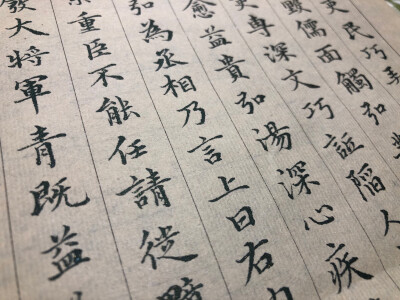 民巧
儒面觸弘
專深文巧詆陷人
愈益貴弘湯深心疾
弘為丞相乃言上曰右
重臣不能任請徙黯
大將軍青既益